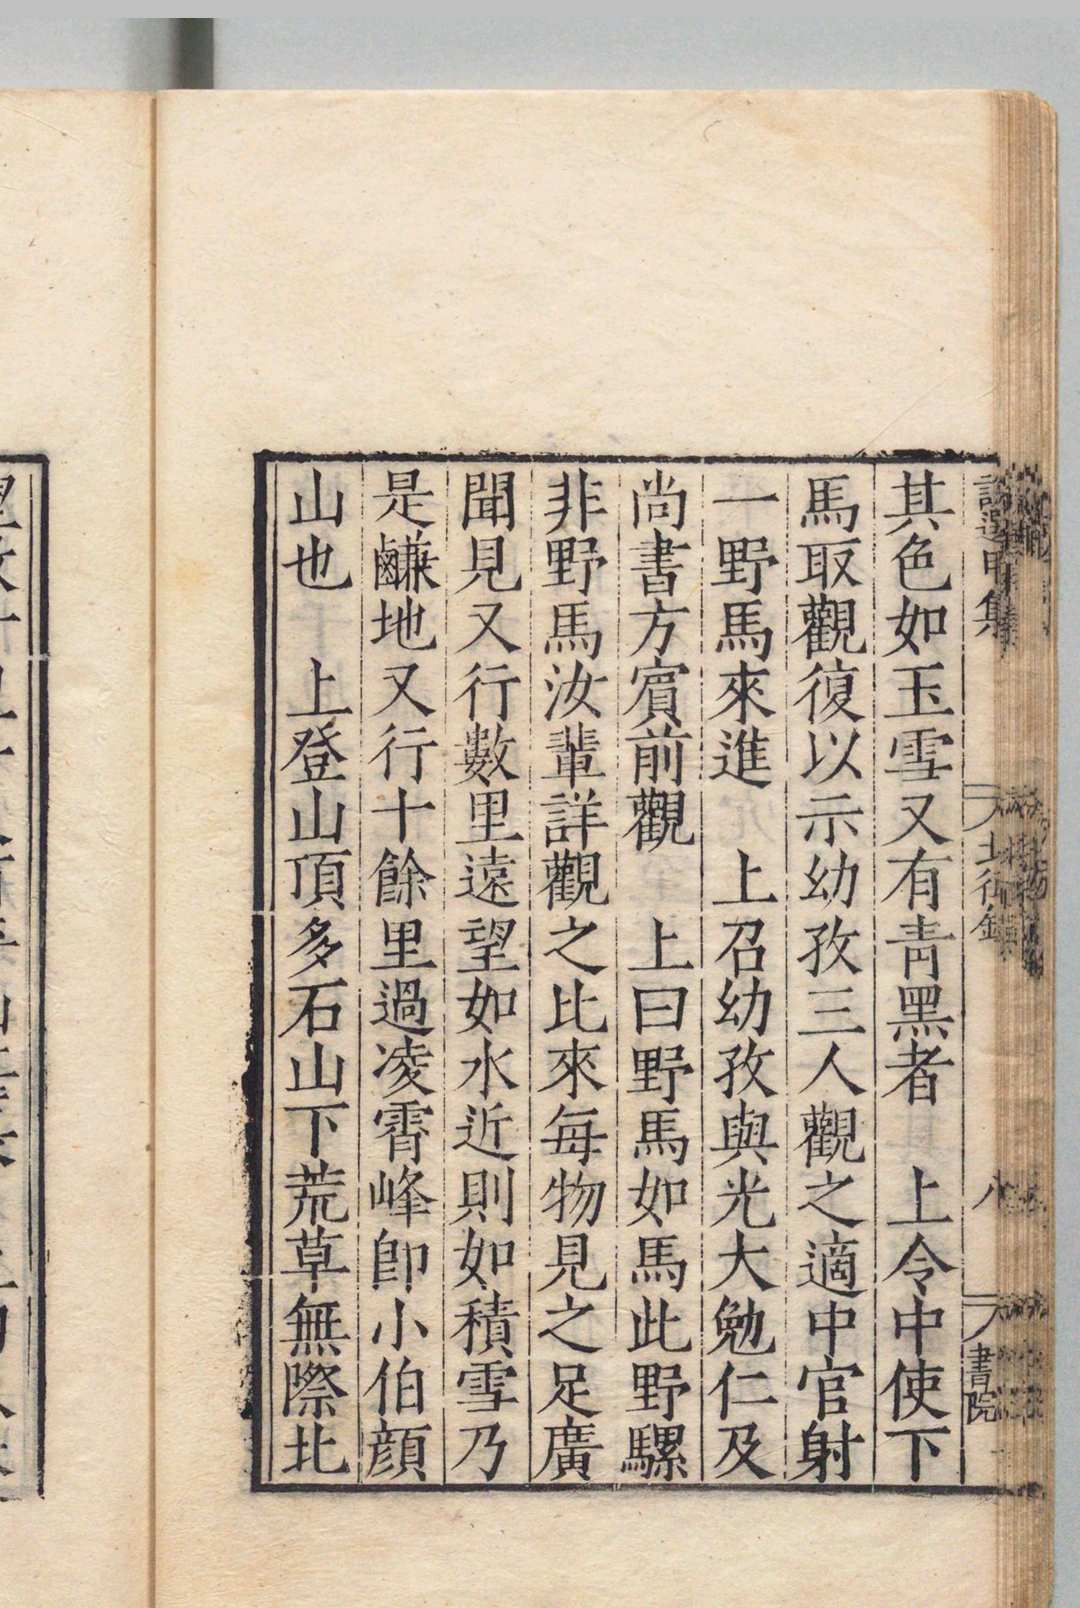 其色如玉雪又有靑黑者　上令中使下
馬取觀復以示幼孜三人觀之適中官射
一野馬來進　上召幼孜與光大勉仁及
尚書方賔前觀　上曰野馬如馬此野騾
非野馬汝輩詳觀之比來每物見之足廣
聞見又行數里遠望如水近則如積雪乃
是鹻地又行十餘里過凌霄峰卽小伯顔
山也　上登山頂多石山下荒草無際北
北征錄
八
書院